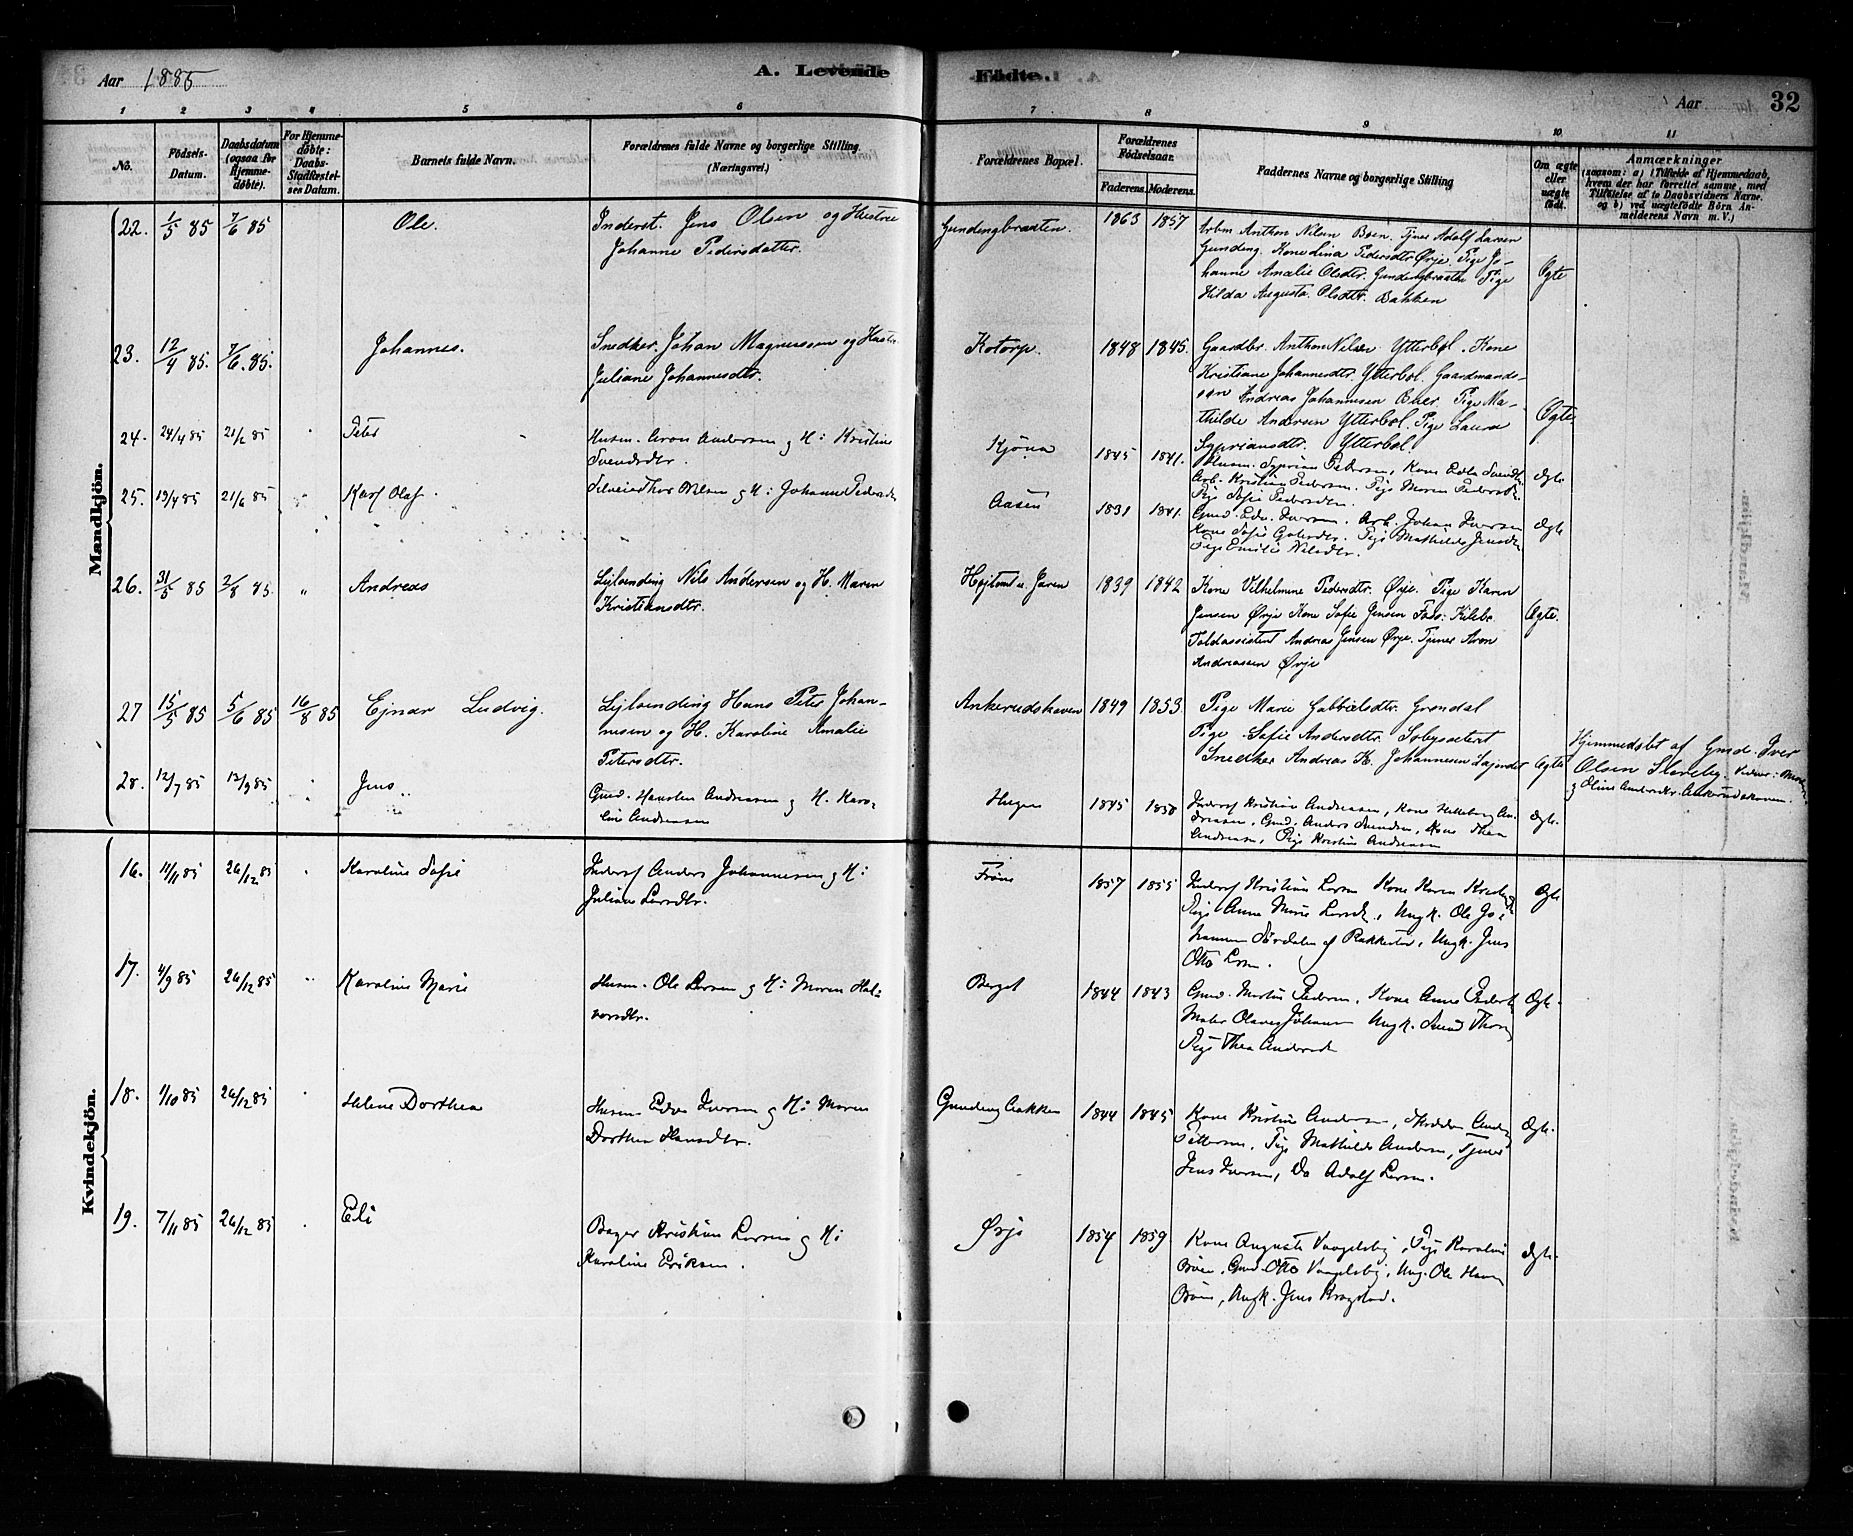 Aar 1885
A. Levende
Födte.
Aar
32
1 2 3 4 5 6 7 8 9 10 11
No.
Födsels-
Datum.
Daabsdatum
(ogsaa for
Hjemme-
døbte).
For Hjemme-
døbte:
Daabs-
Stadfæstel-
ses Datum.
Barnets fulde Navn.
Forældrenes fulde Navne og borgerlige Stilling
(Næringsvei.)
Forældrenes Bopæl.
Forældrenes
Födselsaar.
Faderens. Moderens.
Faddernes Navne og borgerlige Stilling
Om ægte
eller
uægte
født.
Anmærkninger
(saasom: a) i Tilfælde af Hjemmedaab,
hvem der har forrettet samme, med
Tilföielse af to Daabsvidners Navne.
og b) ved uægtefödte Börn An-
melderens Navn m. V.)
Mandkjön.
22. 1/5 85 7/6 85 Ole.
Inderst. Jens Olsen og Hustru
Johanne Pedersdatter.
Gundengbraaten. 1863 1857
Arbm Anthon Nilsen Böen. Tjner Adolf Larsen
Gundeng. Kone Lina Pedersdtr Ørje. Pige Jo-
hanne Amalie Olsdtr. Gundengbraaten Pige
Hilda Augusta Olsdtr. Bakken
Ægte
23. 12/4 85. 7/6. 85. Johannes.
Snedker. Johan Magnussen og Hustru
Juliane Johannesdtr.
Kotorp. 1848 1845.
Gaardbr. Anthon Nilsen Ytterböl. Kone
Kristiane Johannesdtr. Ytterböl. Gaardmands-
søn Andreas Johannesen Buer. Pige Ma-
thilde Andersen Ytterböl. Pige Laura
Sypriansdtr. Ytterböl.
Ægte
24. 24/4 85 21/6 85 " Peter
Husm. Aron Andersen og H: Kristine
Svendsdtr.
Kjöna 1845 1841.
Husm. Syprian Pedersen, Kone Edla Svendsdtr
Arb. Kristian Pedersen. Pige Maren Pedersdtr.
Pige Sofie Pedersdtr.
Ægte
25. 19/4 85 21/6 85 " Karl Olaf.
Thor Nilsen og H: Johanne Pedersdtr
Aasen 1831 1841.
Gmd. Edv. Iversen. Arb. Johan Iversen
Kone Sofie Pige Mathilde Jensdtr
Pige Emilie Nilsdtr.
Ægte
26. 31/5 85 2/8 85. " Andreas
Lejlænding Nils Andersen og H. Maren
Kristiansdtr.
Højtomt u. Jaren 1839 1842
Kone Vilhelmine Pedersdtr. Ørje. Pige Karen
Jensen Ørje Kone Sofie Jensen
Toldassistent Andreas Jensen Ørje. Tjener Aron
Andreassen Ørje
Ægte.
27 15/5 85 5/6 85 16/8 85 Ejnar Ludvig.
Lejlænding Hans Peter Johan-
nesen og H. Karoline Amalie
Petersdtr.
Ankerudskaven 1849 1853.
Pige Marie Gabrielsdtr. Grøndal
Pige Sofie Andersdtr. Sobysæteret
Snedker Andreas H. Johannesen
Ægte
Hjemmedøbt af Gmd. Iver
Olsen Slareby. Vidner:
og Oline Andersdtr. Ankerudskaven.
28. 12/7 85 13/9 85 " Jens
Gmd. Andreasen og H. Karo-
line Andreasen
Hegen 1845 1850
Inderst Kristian Andreasen, Kone An-
dreasen, Gmd. Anders Svendsen, Kone Thea
Andreasen, Pige Kristine Andreasen
Ægte.
Kvindekjön.
16. 11/11 85 26/12 85 " Karoline Sofie
Inderst Anders Johannesen og H:
Juliane Larsdtr.
Fröne 1857 1855
Inderst Kristian Larsen Kone Karen
Pige Anne Marie Larsdtr, Ungk. Ole Jo-
hannesen af Rakkestad, Ungk. Jens
Otto Larsen.
Ægte
17. 4/9 85 26/12 85 " Karoline Marie
Husm. Ole Larsen og H: Maren Hal-
vorsdtr.
Berget 1844 1843
Gmd. Martin Pedersen, Kone Anne Pedersdtr
Maler Olaves Johansen Ungk.
Pige Thea Andersdtr
Ægte
18. 1/10 85 26/12 85 " Helene Dorthea
Husm. Edv. Iversen og H: Maren
Dorthea Hansdtr.
Gundeng bakken 1844 1845
Kone Kristine Andersen, Skrædder
Pettersen, Pige Mathilde Andersen, Tjener
Jens Iversen, Do Adolf Larsen.
Ægte.
19. 7/11 85 26/12 85 " Eli
Bager Kristian Larsen og H:
Karoline Eriksen.
Ørje 1854 1859
Kone Auguste Vaagelsby, Pige Karoline
Böen, Gmd. Otto Vaagelsby, Ung. Ole Hansen
Böen, Ungk. Jens Krogstad.
Ægte